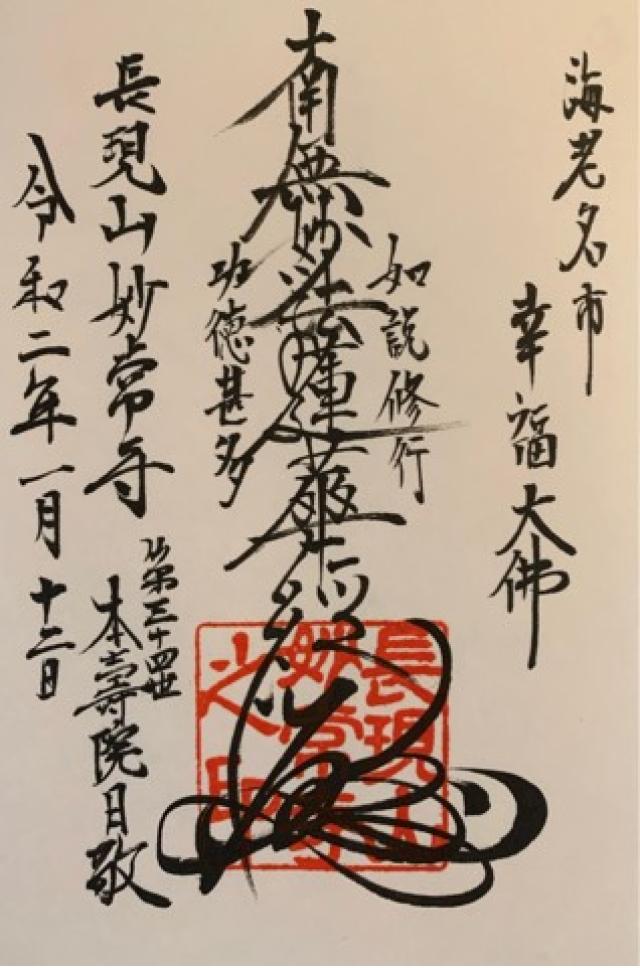 海老名市
幸福大佛
如説修行
南無妙法蓮華経
功徳甚多
長現山妙常寺
第三十四世
本壽院日敬
令和二年一月十二日
長現山
妙常寺
之印